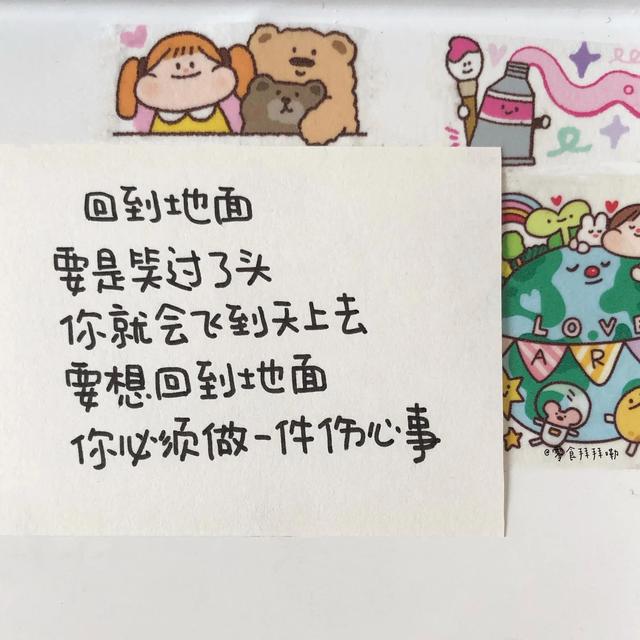 回到地面
要是笑过了头
你就会飞到天上去
要想回到地面
你必须做一件伤心事
LOVE
EAR
@零食拜拜嘞